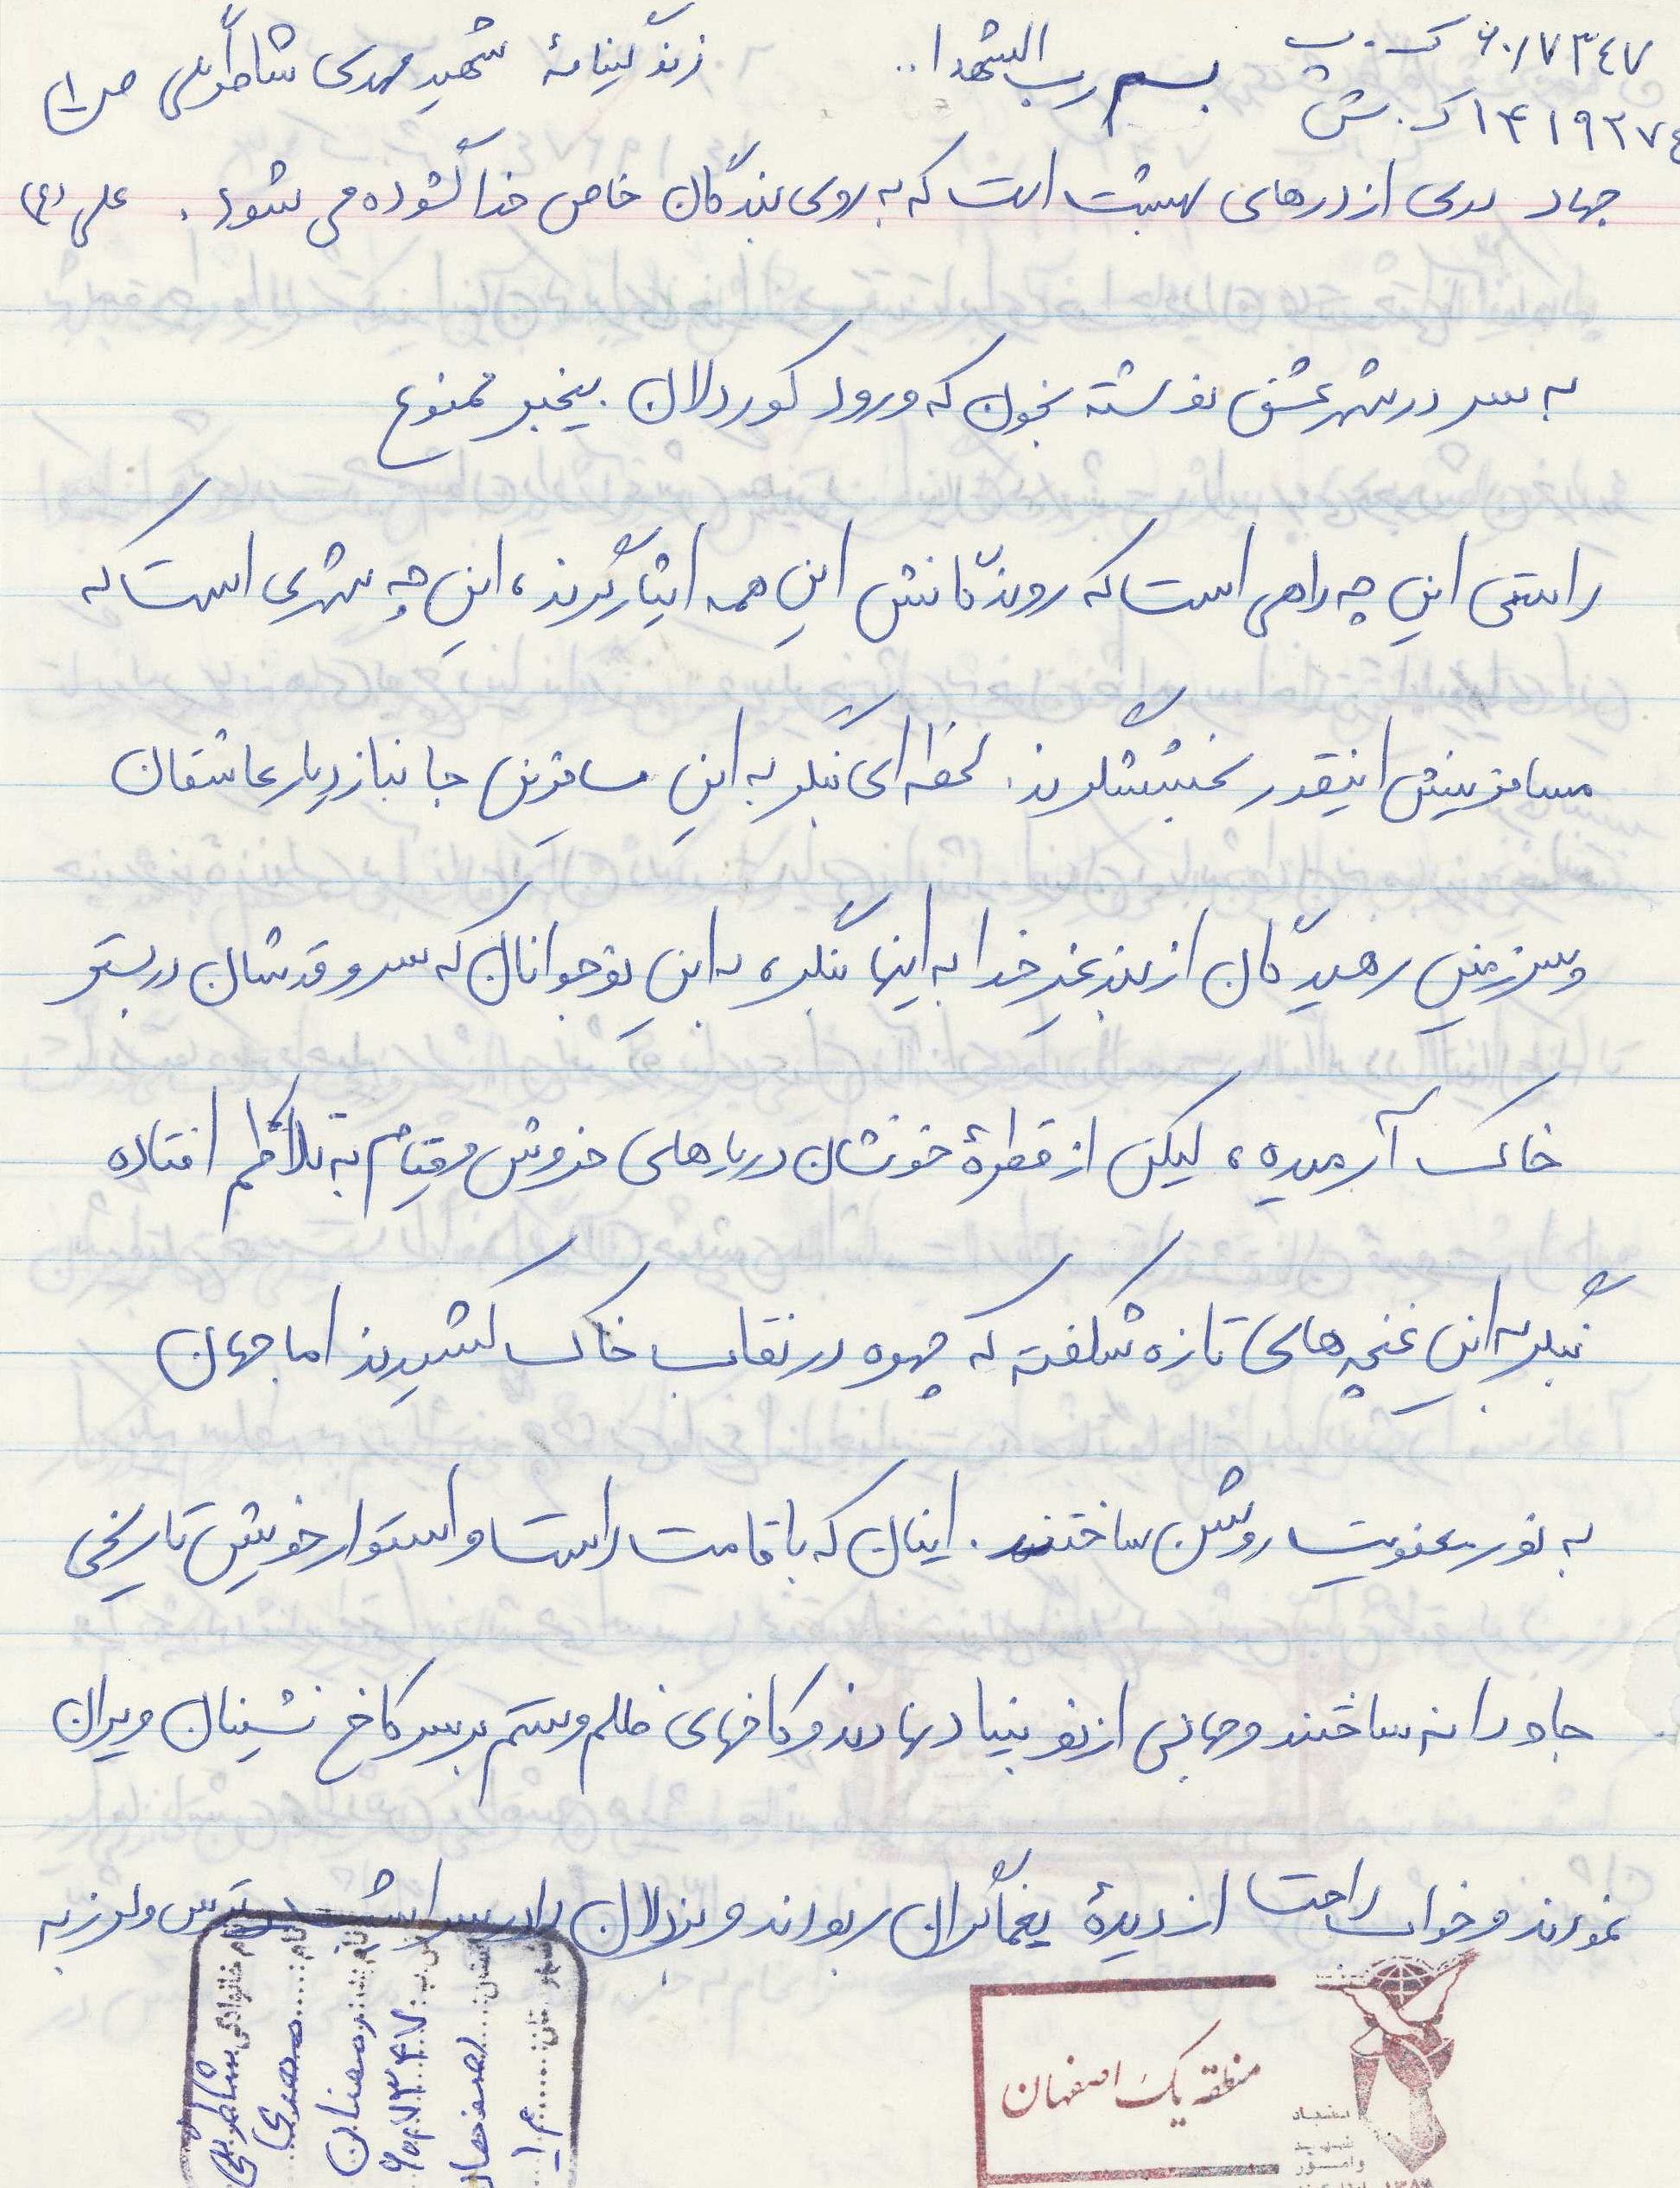 ۶۰/۷۳۴۷ ک.پ بسم رب الشهدا.. زندگینامهٔ شهید مهدی ص ۱
۱۴۱۹۲۷۴ ک.ش
جهاد دری از درهای بهشت است که به روی بندگان خاص خدا گشوده می شود. علی (ع)
به سر در شهر عشق نوشته بخون که ورود کوردلان بیخبر ممنوع
راستی این چه راهی است که روندگانش این همه ایثارگرند، این چه شهری است که
مسافرینش اینقدر بخششگرند. لحظه ای بنگر به این مسافرین جانباز دیار عاشقان
و سرزمین رهیدگان از بند غیر خدا به اینها بنگر، به این نوجوانان که سرو قدشان در بستر
خاک آرمیده، لیکن از قطرهٔ خونشان دریاهای خروش و قیام به تلاطم افتاده
بنگر به این غنچه های تازه شکفته که چهره در نقاب خاک کشیدند اما جهان
به نور معنویت روشن ساختند. اینان که با قامت راست و استوار خویش تاریخی
جاودانه ساختند و جهانی از نو بنیاد نهادند و کاخهای ظلم و ستم بر سر کاخ نشینان ویران
نمودند و خواب راحت از دیدهٔ یغماگران ربودند و بزدلان را در ترس و لرز به
نام خانوادگی
نام: مهدی
نام پدر: رمضان
ک پ: ۶۰/۷۳۴۷
استان: اصفهان
منطقه یک اصفهان
بنیاد
شهید
و امور